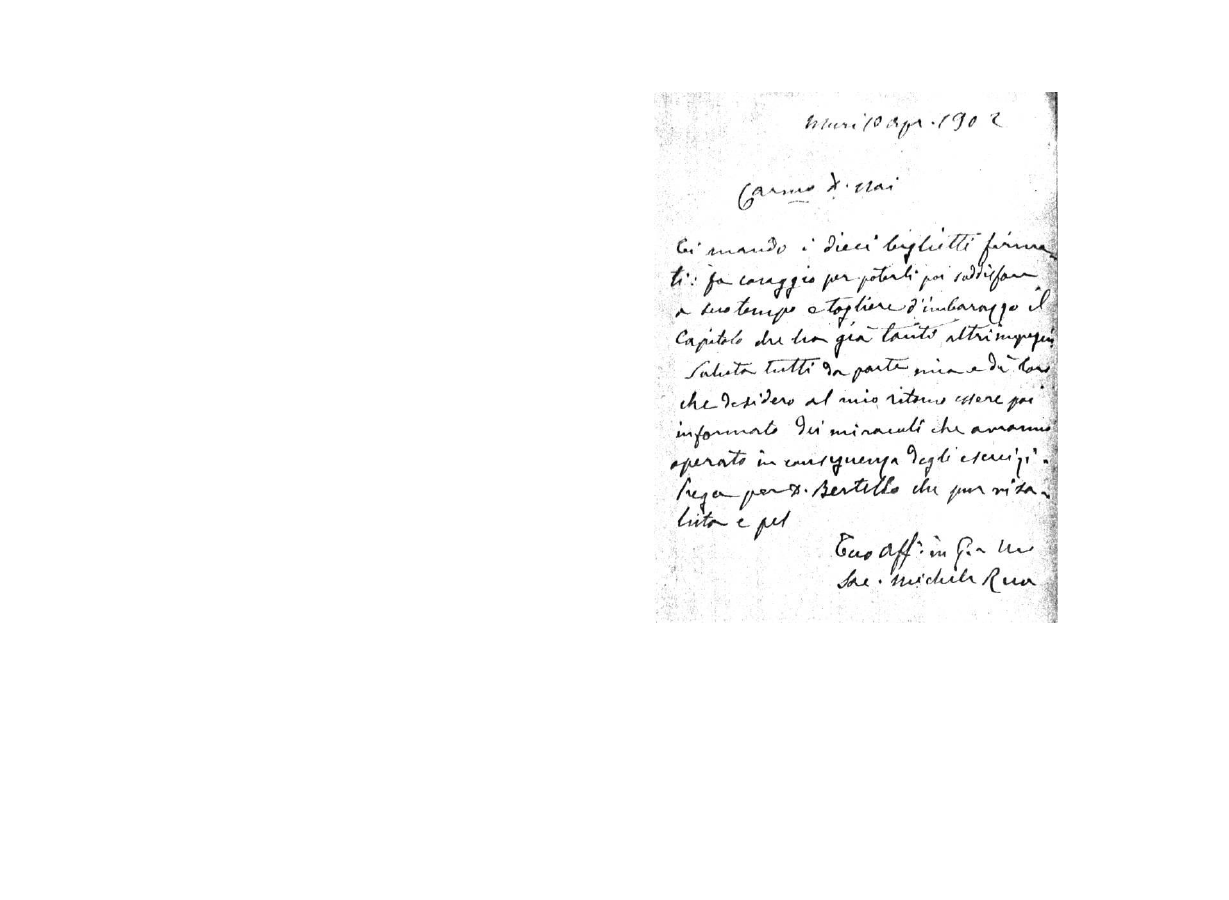 Muri 10 Apr. 1902
Carmo D. Nai
Ti mando i dieci biglietti firma-
ti: fa coraggio per poterli poi soddisfare
a suo tempo e togliere d'imbarazzo il
Capitolo che ha già tanti altri impegni
Saluta tutti da parte mia e dì loro
che desidero al mio ritorno essere poi
informato dei miracoli che avranno
operato in conseguenza degli esercizi.
Prega per D. Bertello che pur risa-
luta e pel
Tuo Aff. in G. e M.
Sac. Michele Rua